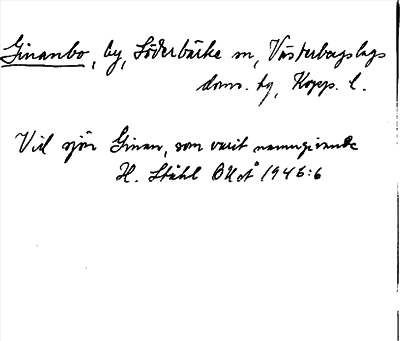 Ginanbo, by, Söderbärke sn, Västerbergslags
doms. hg, Kopp. l.
Vid sjön Ginan, som varit namngivande
H. Ståhl OUÅ 1945:6